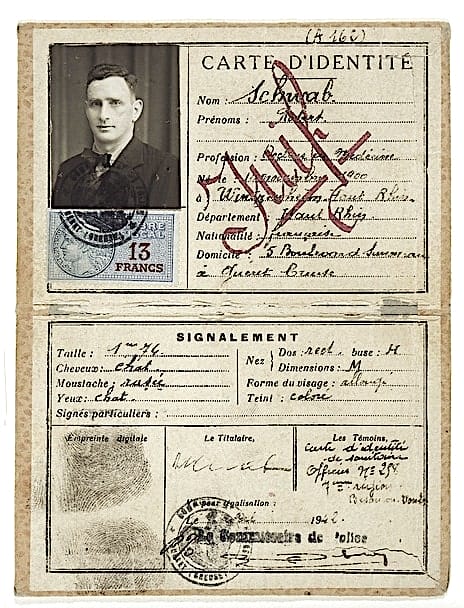 (A 162)
CARTE D'IDENTITÉ
Nom : Schwab
Prénoms : Robert
Juif
Profession : Docteur en Médecine
Né le : 1900
à Wintzenheim Haut Rhin
Département : Haut Rhin
Nationalité : française
Domicile : 5 Boulevard
à Guéret Creuse
13
FRANCS
SIGNALEMENT
Taille : 1m 76
Cheveux : chat
Moustache : rasée
Yeux : chat.
Signes particuliers :
Nez { Dos : rect. base : H
Dimensions : M
Forme du visage : allongé
Teint : coloré
Empreinte digitale
Le Titulaire,
Les Témoins,
Carte d'identité
de sanitaire
Officier N° 258
7ème région
légalisation :
Le 1942.
Le Commissaire de Police